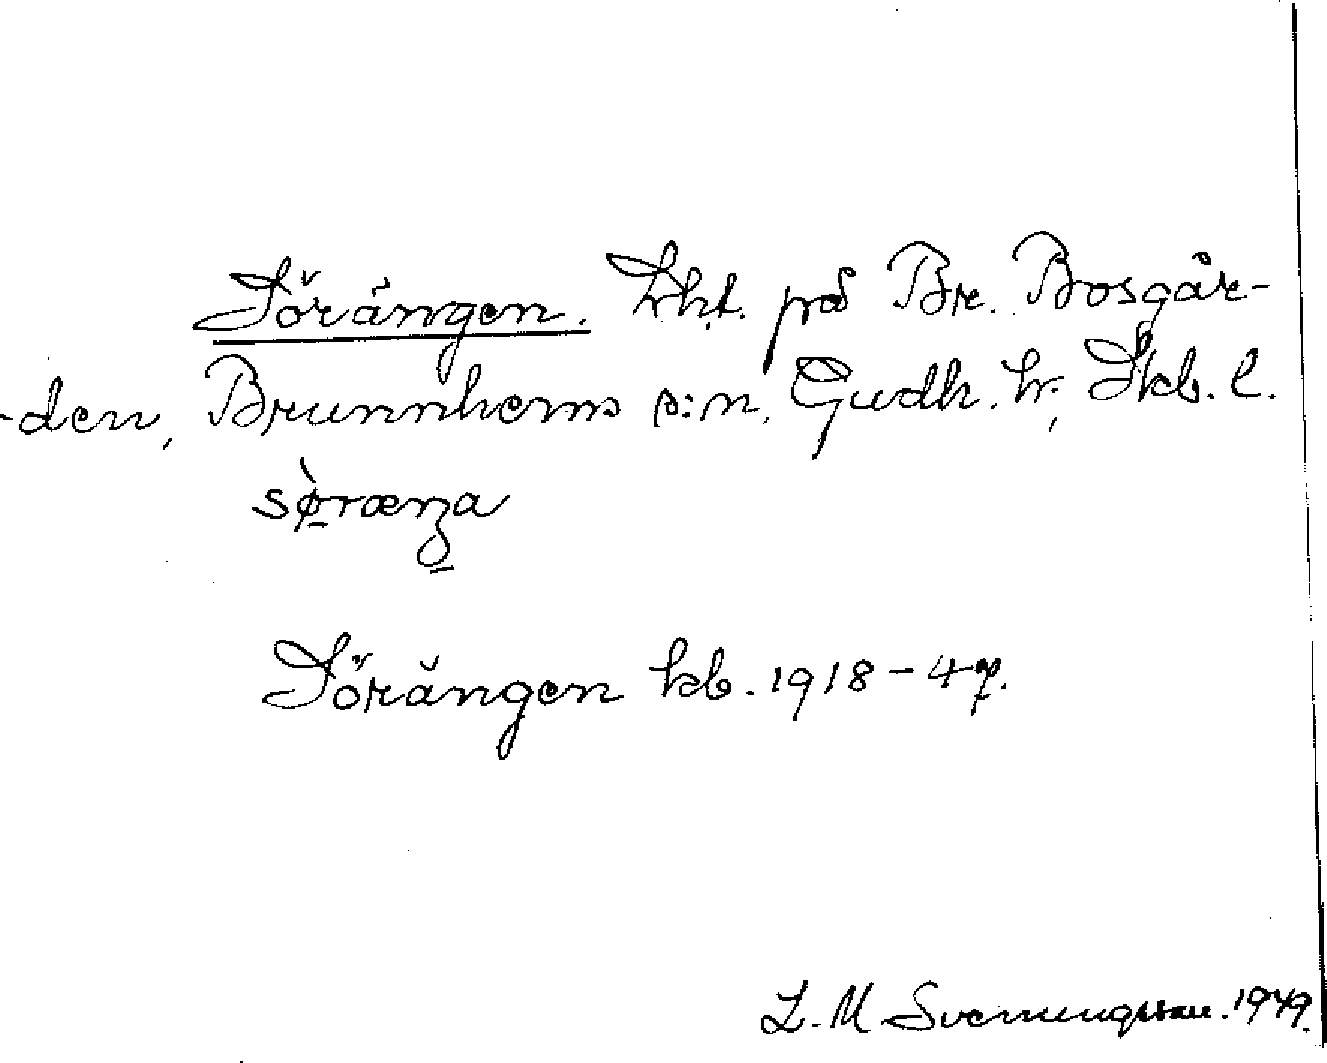 Sörängen. Lht. på Br. Bosgår-
-den, Brunnhems s:n, Gudh. hr, Skb. l.
sø̀ræŋa
Sörängen kb. 1918-47.
L. M Svenungsson. 1949.